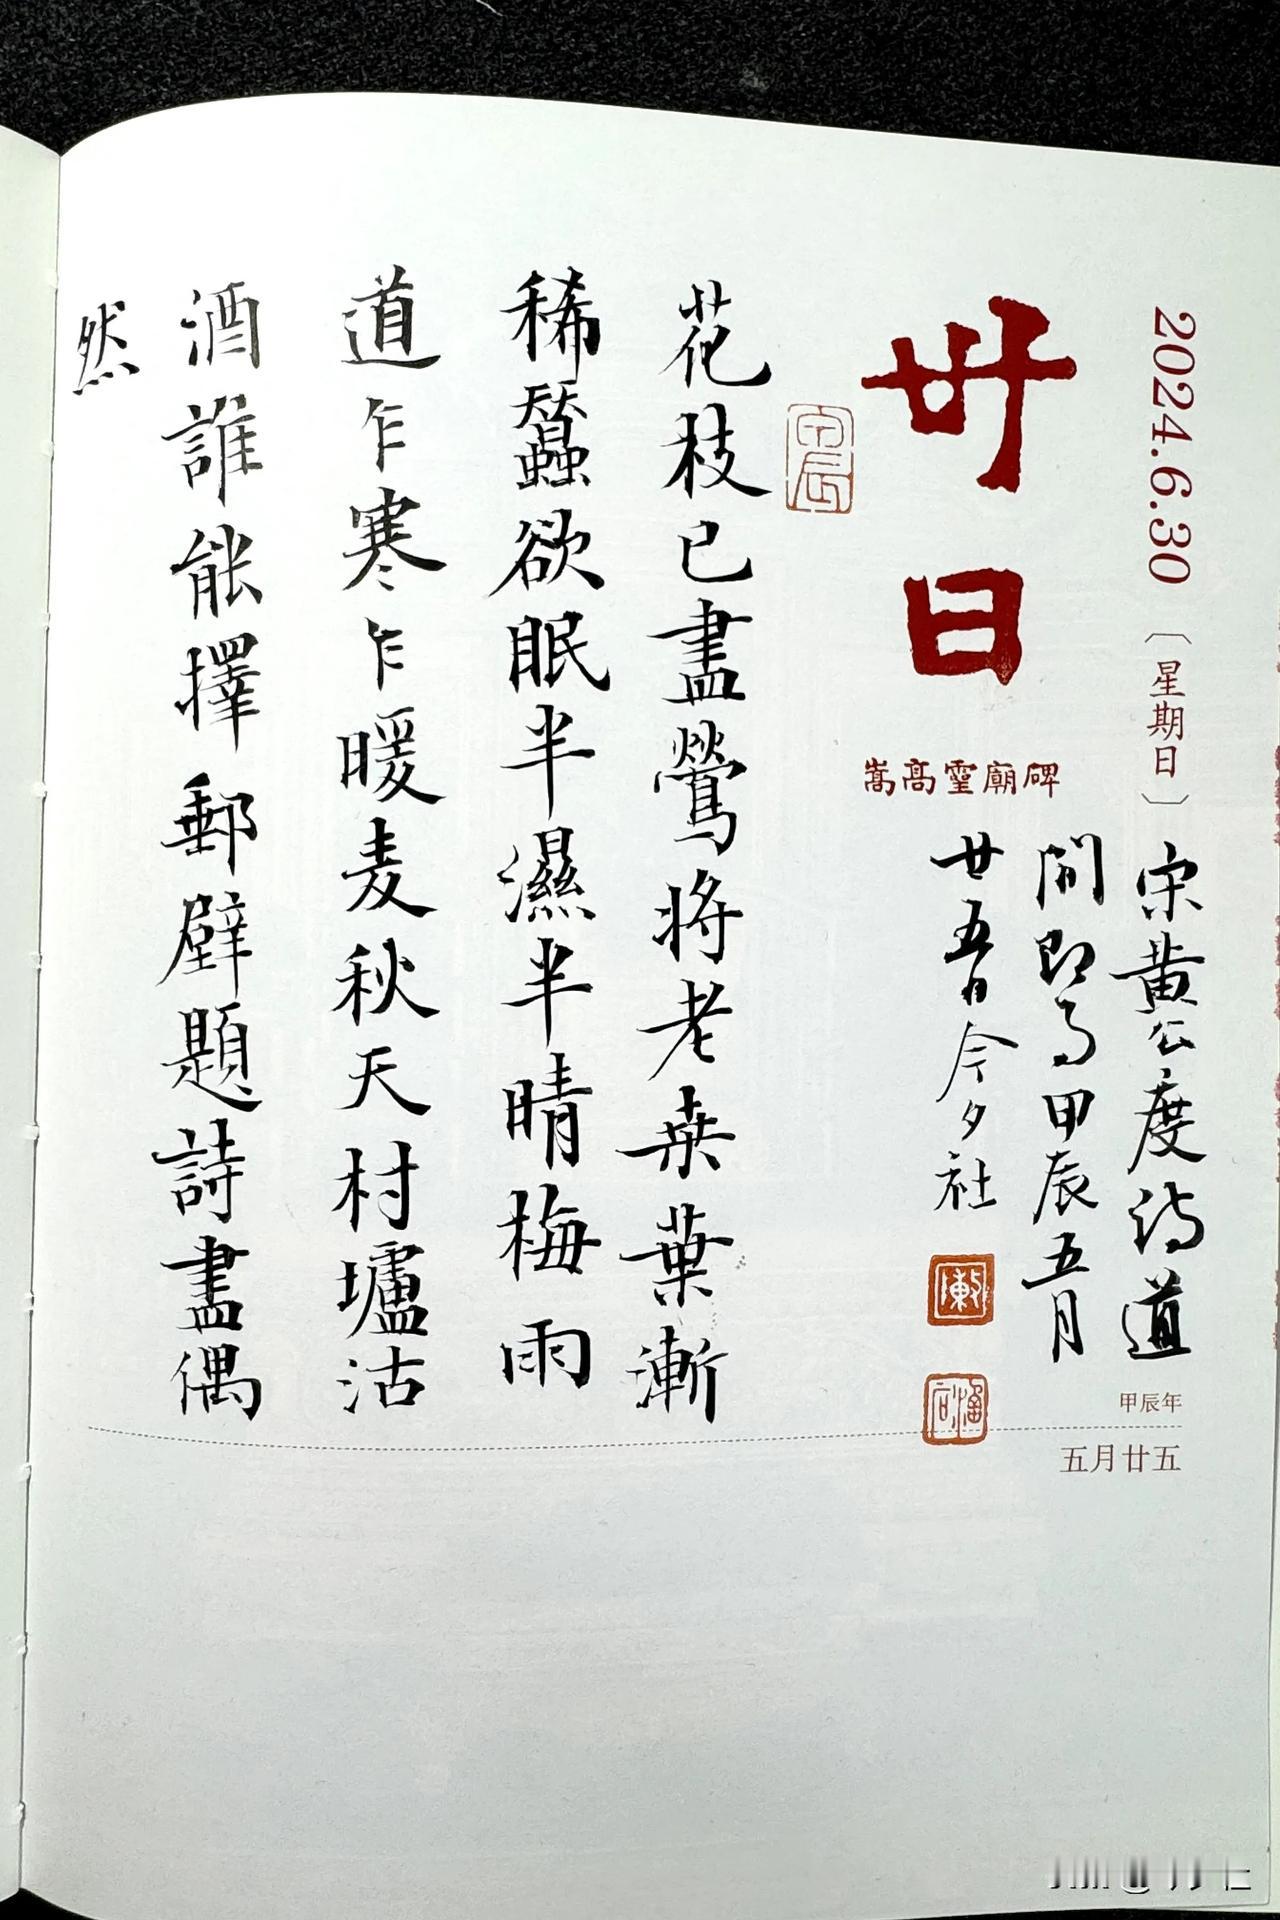 2024.6.30〔星期日〕
卅日
嵩高靈廟碑
宋黄公度詩道
間即事甲辰五月
廿五日今夕社
甲辰年
五月廿五
甲辰
花枝已盡鶯將老桒葉漸
稀蠶欲眠半濕半晴梅雨
道乍寒乍暖麦秋天村壚沽
酒誰能擇郵壁題詩盡偶
然